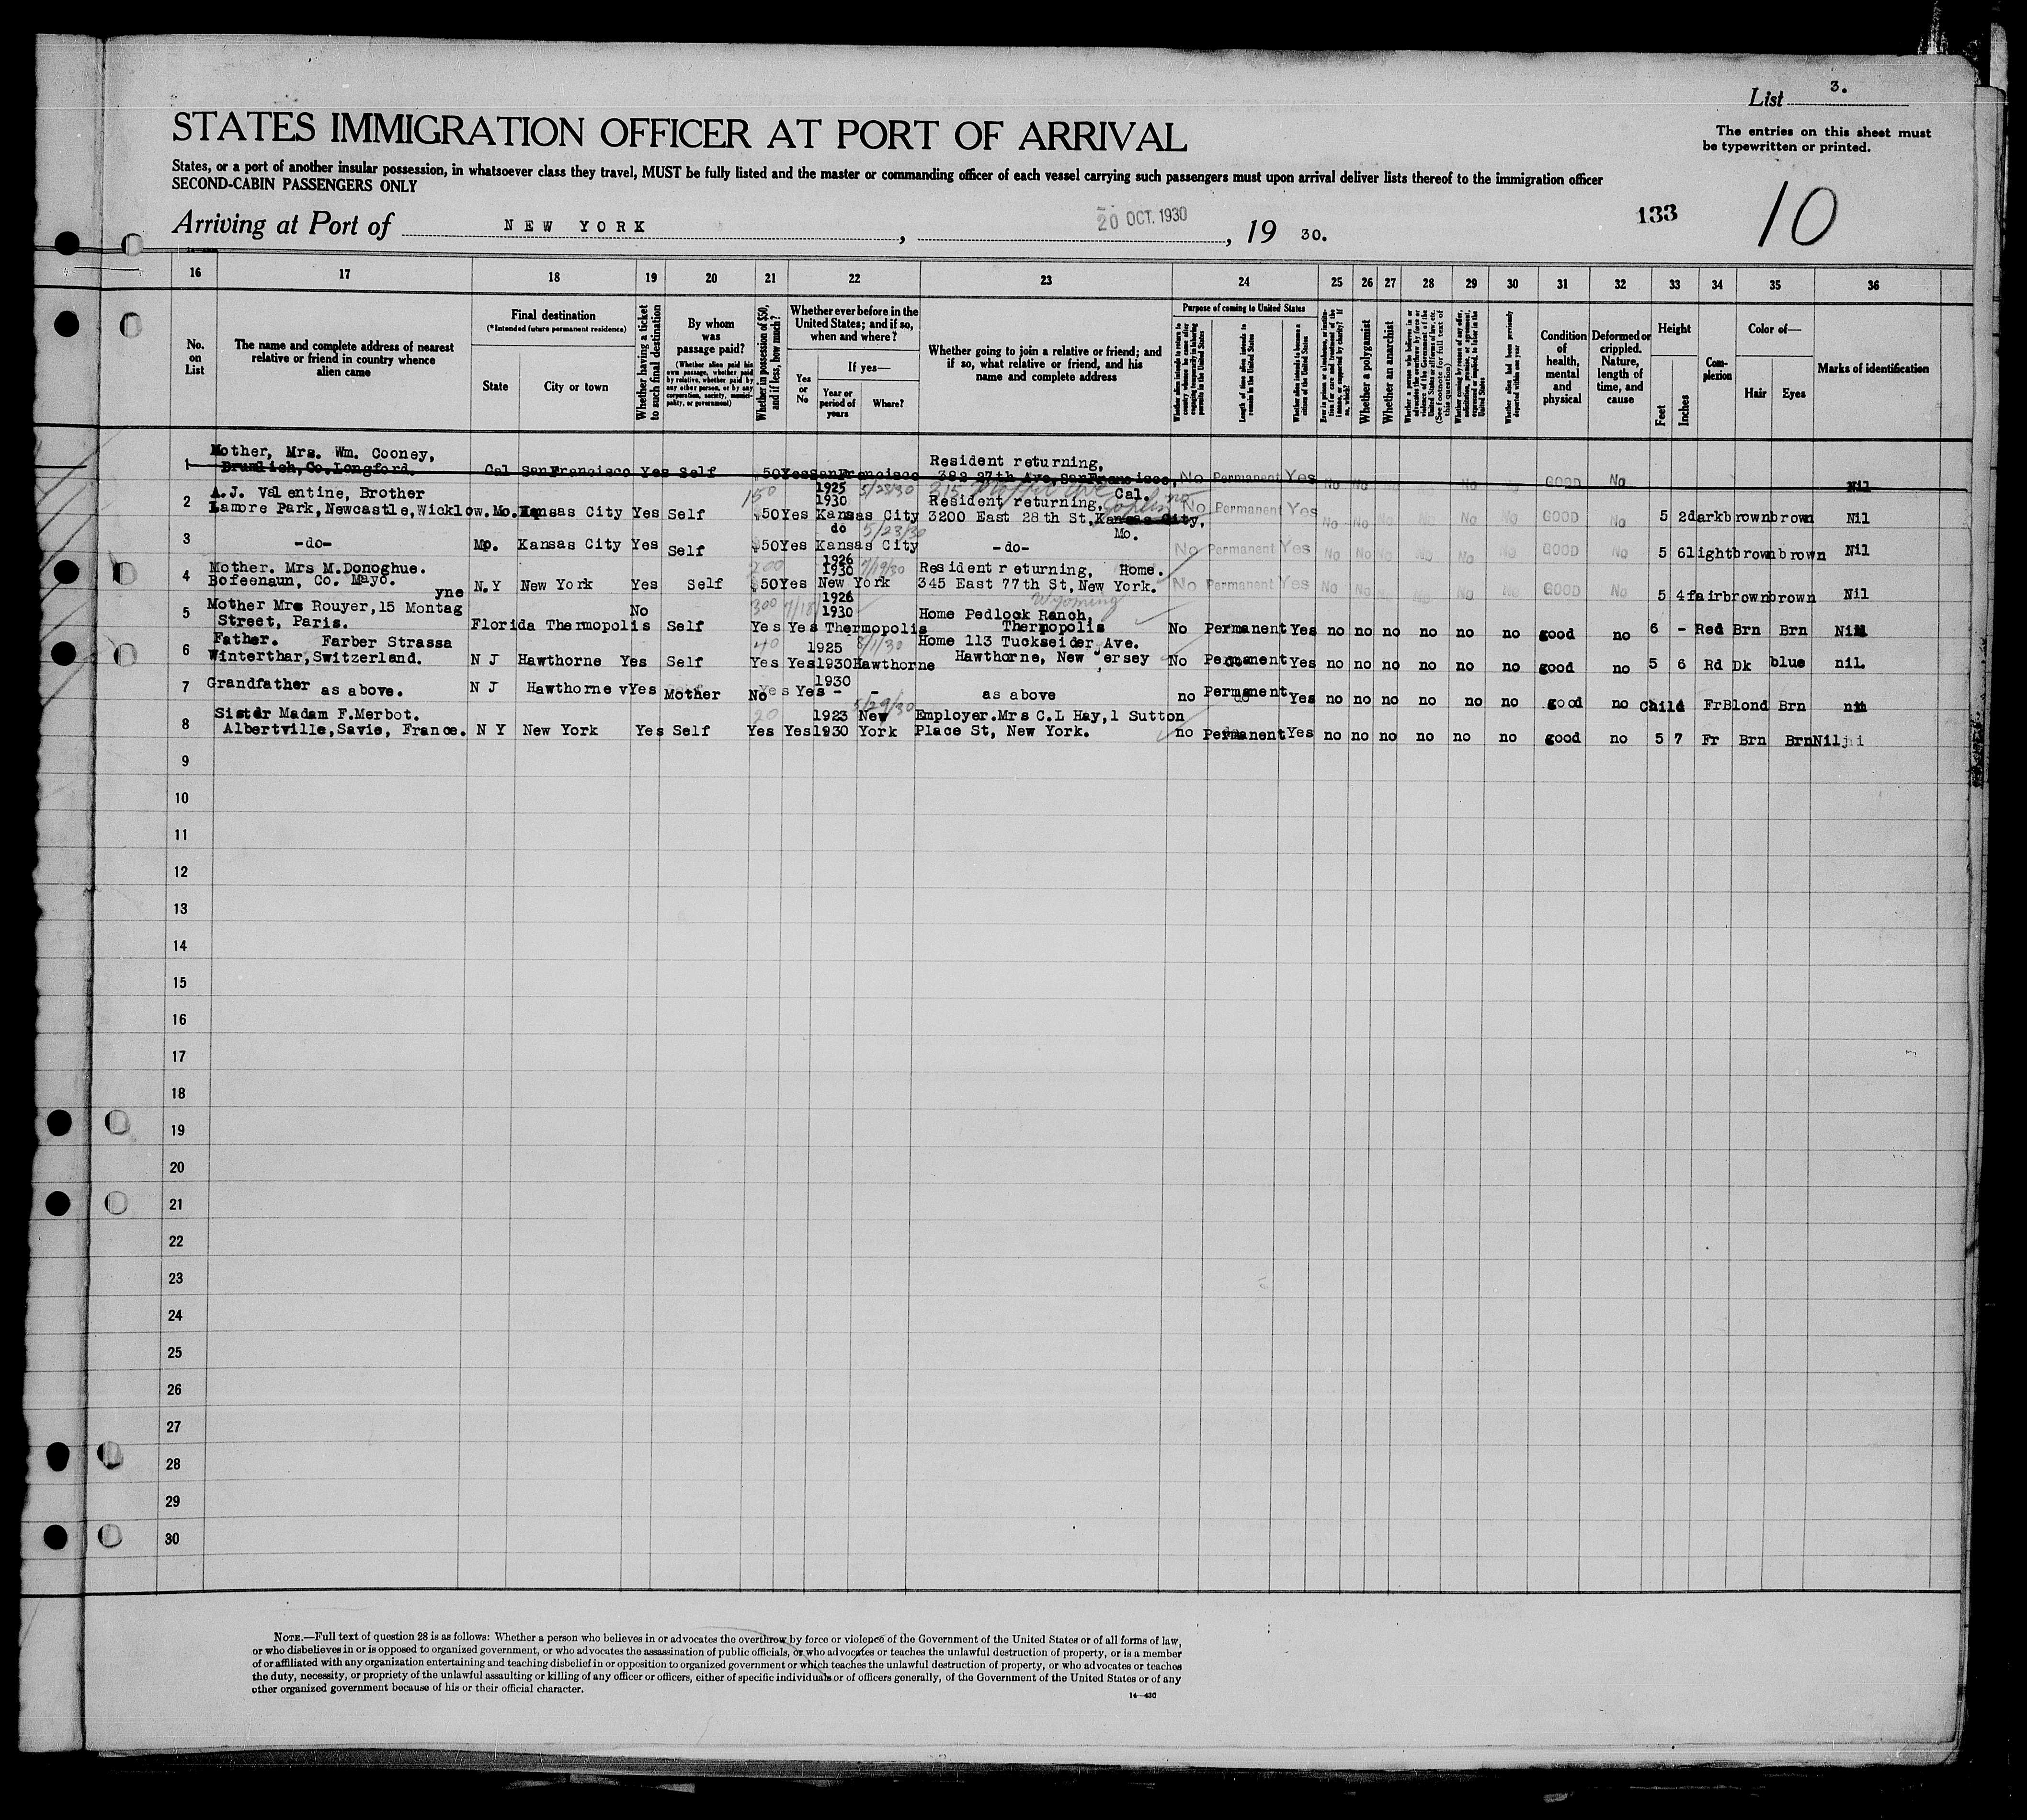 List 3.
STATES IMMIGRATION OFFICER AT PORT OF ARRIVAL
The entries on this sheet must
be typewritten or printed.
States, or a port of another insular possession, in whatsoever class they travel, MUST be fully listed and the master or commanding officer of each vessel carrying such passengers must upon arrival deliver lists thereof to the immigration officer
SECOND-CABIN PASSENGERS ONLY
Arriving at Port of NEW YORK, 20 OCT. 1930, 19 30.
133
10
16 17 18 19 20 21 22 23 24 25 26 27 28 29 30 31 32 33 34 35 36
No. on List
The name and complete address of nearest
relative or friend in country whence
alien came
Final destination
(*Intended future permanent residence)
State
City or town
Whether having a ticket
to such final destination
By whom
was
passage paid?
(Whether alien paid his
own passage, whether paid
by relative, whether paid by
any other person, or by any
corporation, society, munici-
pality, or government)
Whether in possession of $50,
and if less, how much?
Whether ever before in the
United States; and if so,
when and where?
Yes
or
No
If yes—
Year or
period of
years
Where?
Whether going to join a relative or friend; and
if so, what relative or friend, and his
name and complete address
Purpose of coming to United States
Length of time alien intends to
remain in the United States
Whether alien intends to become a
citizen of the United States
Whether a polygamist
Whether an anarchist
Whether alien had been previously
deported within one year
Condition
of
health,
mental
and
physical
Deformed or
crippled.
Nature,
length of
time, and
cause
Height
Feet
Inches
Com-
plexion
Color of—
Hair
Eyes
Marks of identification
1 Mother, Mrs. Wm. Cooney,
Drumlish, Co. Longford. Cal San Francisco Yes Self 50 Yes San Francisco
Resident returning,
382 27th Ave, San Francisco, Cal. No Permanent Yes No No No GOOD No Nil
2 A.J. Valentine, Brother
Lamore Park, Newcastle, Wicklow. Mo. Kansas City Yes Self 150 $50 Yes 1925 1930 5/23/30 Kansas City
Resident returning,
3200 East 28th St, Kansas City, Mo. Joplin No Permanent Yes No No No No No No GOOD No 5 2 dark brown brown Nil
3 -do- Mo. Kansas City Yes Self $50 Yes do 5/23/30 Kansas City -do- No Permanent Yes No No No No No No GOOD No 5 6 light brown brown Nil
4 Mother. Mrs M. Donoghue.
Bofeenaun, Co. Mayo. N.Y New York Yes Self 200 $50 Yes 1926 1930 7/19/30 New York
Resident returning, Home.
345 East 77th St, New York. No Permanent Yes No No No No No No GOOD No 5 4 fair brown brown Nil
5 Mother Mrs Rouyer, 15 Montagyne
Street, Paris. Florida Thermopolis No Self 300 Yes Yes 1926 1930 7/18 Thermopolis
Home Pedlock Ranch,
Thermopolis Wyoming No Permanent Yes no no no no no no good no 6 - Red Brn Brn Nil
6 Father. Farber Strassa
Winterthar, Switzerland. N J Hawthorne Yes Self 40 Yes Yes 1925 1930 8/1/30 Hawthorne
Home 113 Tuckseider Ave.
Hawthorne, New Jersey No Permanent Yes no no no no no no good no 5 6 Rd Dk blue nil.
7 Grandfather as above. N J Hawthorne Yes Mother No Yes 1930 - - as above no Permanent Yes no no no no no no good no Child Fr Blond Brn
8 Sister Madam F. Merbot.
Albertville, Savie, France. N Y New York Yes Self 20 Yes Yes 1923 1930 5/29/30 New York
Employer. Mrs C.L Hay, 1 Sutton
Place St, New York. no Permanent Yes no no no no no no good no 5 7 Fr Brn Brn Nil
9
10
11
12
13
14
15
16
17
18
19
20
21
22
23
24
25
26
27
28
29
30
NOTE.—Full text of question 28 is as follows: Whether a person who believes in or advocates the overthrow by force or violence of the Government of the United States or of all forms of law,
or who disbelieves in or is opposed to organized government, or who advocates the assassination of public officials, or who advocates or teaches the unlawful destruction of property, or is a member
of or affiliated with any organization entertaining and teaching disbelief in or opposition to organized government or which teaches the unlawful destruction of property, or who advocates or teaches
the duty, necessity, or propriety of the unlawful assaulting or killing of any officer or officers, either of specific individuals or of officers generally, of the Government of the United States or of any
other organized government because of his or their official character.
14—430